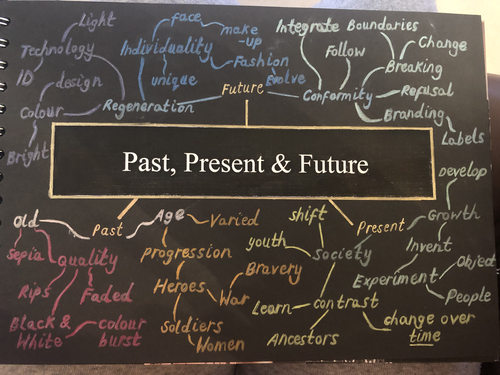 Light
face
make
-up
Integrate Boundaries
Technology
Individuality
Follow
Change
ID
design
unique
Fashion
Evolve
Breaking
Future
Refusal
Colour
Regeneration
Conformity
Branding
Bright
Labels
Past, Present & Future
develop
Old
Past
Age
Varied
shift
Present
Growth
Sepia
Quality
Progression
youth
Society
Invent
Object
Bravery
Experiment
Rips
Faded
Heroes
War
Learn
contrast
People
Black &
White
colour
burst
Soldiers
Women
Ancestors
change over
time